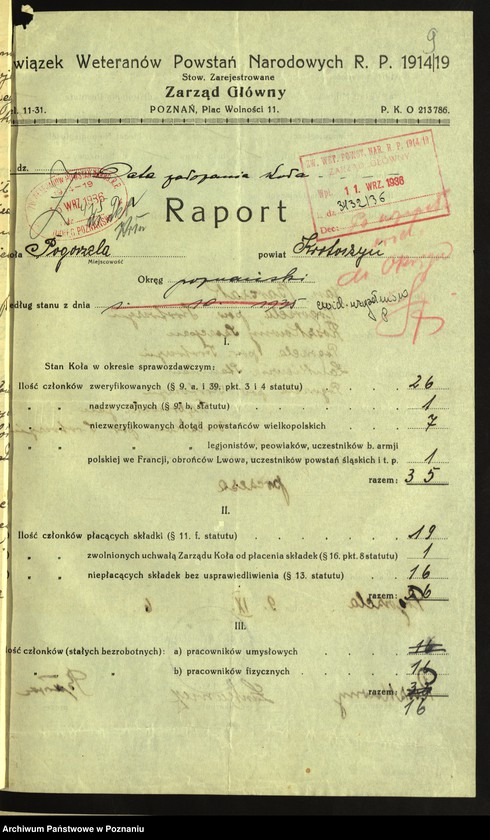 9
wiązek Weteranów Powstań Narodowych R. P. 1914/19
Stow. Zarejestrowane
Zarząd Główny
l. 11-31. POZNAŃ, Plac Wolności 11. P. K. O 213786.
dz. Data założenia Koła
ZW. WET. POWST. NAR. R. P. 1914/19
ZARZĄD GŁÓWNY
Wpł. 11 WRZ. 1936
L. dz. 3132/36
Dec:
WRZ. 1936
Raport
Koła Pogorzela powiat Krotoszyn
Miejscowość
Okręg poznański
edług stanu z dnia 1935
I.
Stan Koła w okresie sprawozdawczym:
Ilość członków zweryfikowanych (§ 9. a. i 39. pkt. 3 i 4 statutu) 26
" " nadzwyczajnych (§ 9. b. statutu) 1
" " niezweryfikowanych dotąd powstańców wielkopolskich 7
" " " legjonistów, peowiaków, uczestników b. armji
polskiej we Francji, obrońców Lwowa, uczestników powstań śląskich i t. p. 1
razem: 35
II.
Ilość członków płacących składki (§ 11. f. statutu) 19
" " zwolnionych uchwałą Zarządu Koła od płacenia składek (§ 16. pkt. 8 statutu) 1
" " niepłacących składek bez usprawiedliwienia (§ 13. statutu) 16
razem: 36
III.
lość członków (stałych bezrobotnych): a) pracowników umysłowych 16
" " b) pracowników fizycznych 16
razem:
16
Archiwum Państwowe w Poznaniu
www.szukajwarchiwach.gov.pl